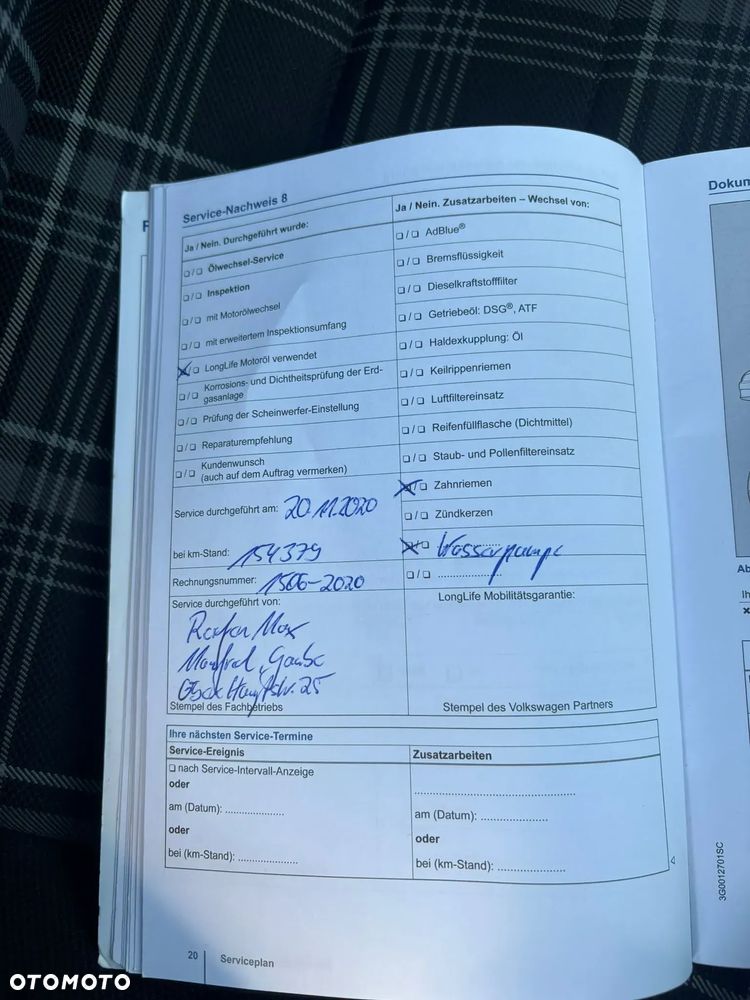 Service-Nachweis 8
Ja / Nein. Durchgeführt wurde:
Ölwechsel-Service
Inspektion
mit Motorölwechsel
mit erweitertem Inspektionsumfang
LongLife Motoröl verwendet
Korrosions- und Dichtheitsprüfung der Erd-
gasanlage
Prüfung der Scheinwerfer-Einstellung
Reparaturempfehlung
Kundenwunsch
(auch auf dem Auftrag vermerken)
Service durchgeführt am: 20.11.2020
bei km-Stand: 154379
Rechnungsnummer: 1506-2020
Service durchgeführt von:
Max
Stempel des Fachbetriebs
Ja / Nein. Zusatzarbeiten – Wechsel von:
AdBlue®
Bremsflüssigkeit
Dieselkraftstofffilter
Getriebeöl: DSG®, ATF
Haldexkupplung: Öl
Keilrippenriemen
Luftfiltereinsatz
Reifenfüllflasche (Dichtmittel)
Staub- und Pollenfiltereinsatz
Zahnriemen
Zündkerzen
Wasserpumpe
LongLife Mobilitätsgarantie:
Stempel des Volkswagen Partners
Ihre nächsten Service-Termine
Service-Ereignis
nach Service-Intervall-Anzeige
oder
am (Datum):
oder
bei (km-Stand):
Zusatzarbeiten
am (Datum):
oder
bei (km-Stand):
20
Serviceplan
Dokum
Ab
Ih
3G0012701SC
OTOMOTO